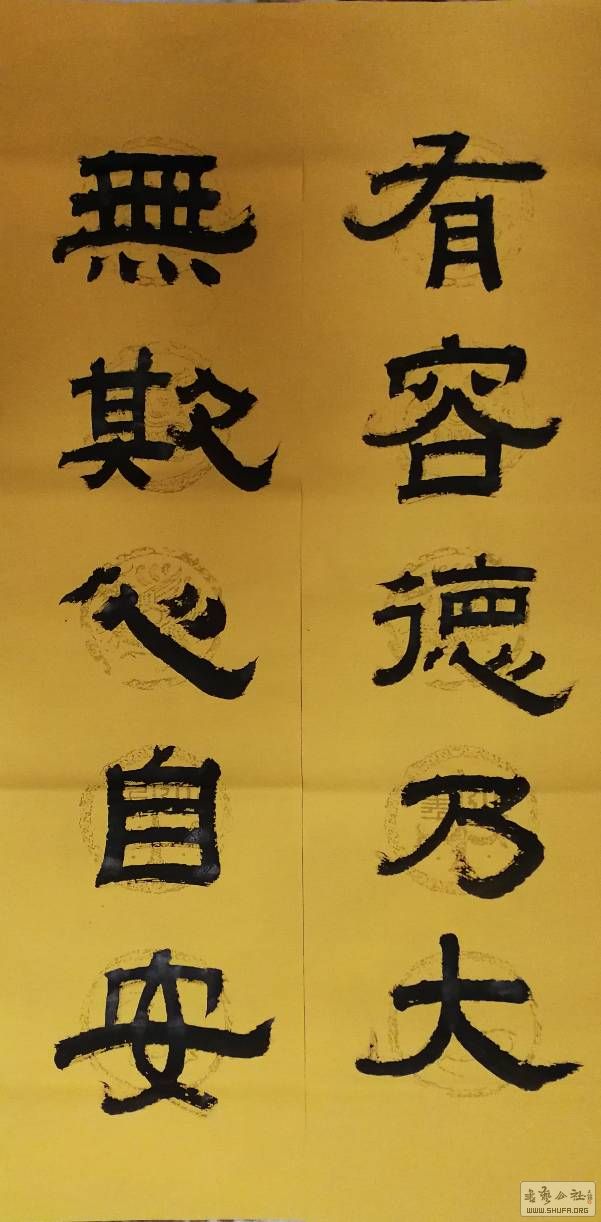 有容德乃大
無欺心自安
书艺公社
WWW.SHUFA.ORG